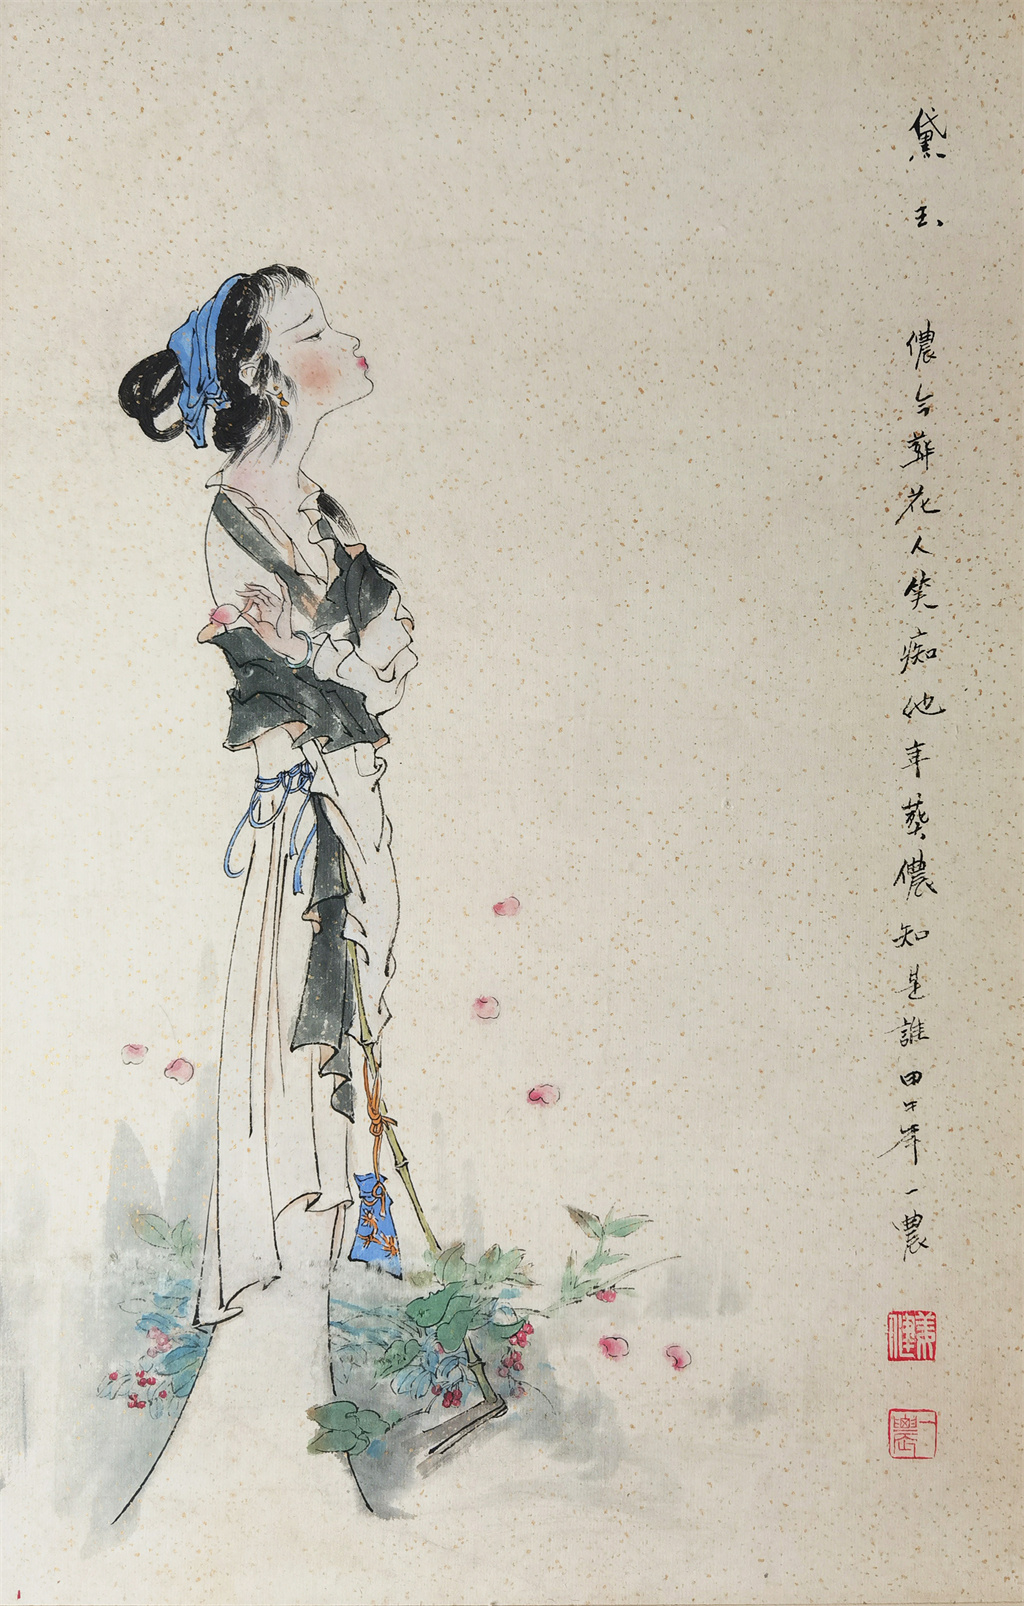 黛玉 儂今葬花人笑痴他年葬儂知是誰甲午年 一農
一農